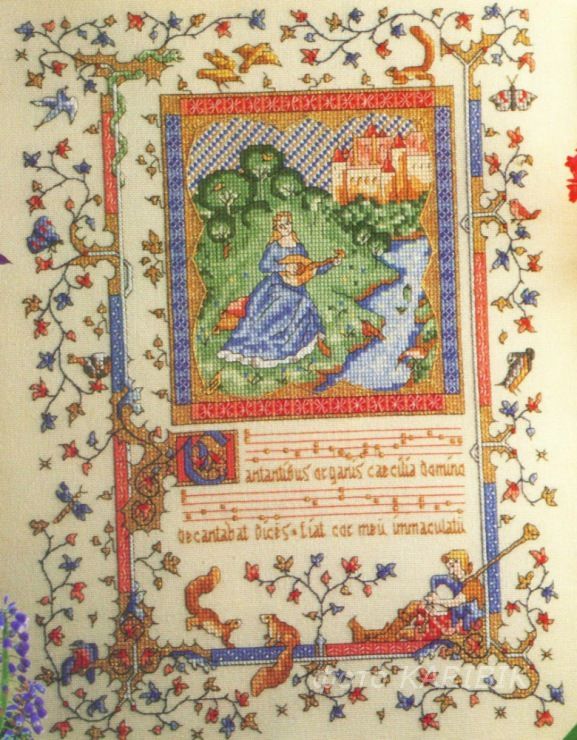 Cantantibus organis caecilia domino
decantabat dicēs • fiat cor meū immaculatū
ФОТО KARLETIK